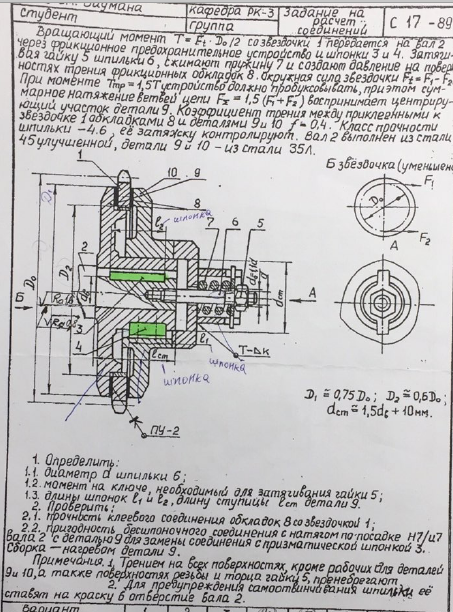 студент
кафедра РК-3
группа
Задание на
расчет
соединений
С 17 -89
Вращающий момент T = Ft · D₀/2 со звездочки 1 передается на вал 2
через фрикционное предохранительное устройство и шпонки 3 и 4. Затяги-
вая гайку 5 шпильки 6, сжимают пружину 7 и создают давление на поверх-
ностях трения фрикционных обкладок 8. Окружная сила звездочки Ft = F1 - F2.
При моменте Tтр = 1,5T устройство должно пробуксовывать, при этом сум-
марное натяжение ветвей цепи FΣ = 1,5 (F1 + F2) воспринимает центриру-
ющий участок детали 9. Коэффициент трения между приклеенными к
звездочке 1 обкладками 8 и деталями 9 и 10 f = 0,4. Класс прочности
шпильки -4.6, её затяжку контролируют. Вал 2 выполнен из стали
45 улучшенной, детали 9 и 10 - из стали 35Л.
Б звездочка (уменьшено)
1
10
9
8
l₂
шпонка
7
6
5
F1
D₀
F2
А
D1
D₀
D2
2
Б
3
4
dст
А
lст
l1
шпонка
шпонка
Т-ΔК
ПУ-2
D1 ≅ 0,75 D₀; D2 ≅ 0,6 D₀;
dст ≅ 1,5dв + 10мм.
1. Определить:
1.1. диаметр d шпильки 6;
1.2. момент на ключе, необходимый для затягивания гайки 5;
1.3. длины шпонок l1 и l2, длину ступицы lст детали 9.
2. Проверить:
2.1. прочность клеевого соединения обкладок 8 со звездочкой 1;
2.2. пригодность десшпоночного соединения с натягом по посадке H7/u7
вала 2 с деталью 9 для замены соединения с призматической шпонкой 3.
Сборка - нагревом детали 9.
Примечания. 1. Трением на всех поверхностях, кроме рабочих для деталей
9 и 10, а также поверхностях резьбы и торца гайки 5, пренебрегают.
2. Для предупреждения самоотвинчивания шпильки её
ставят на краску в отверстие вала 2.
Вариант